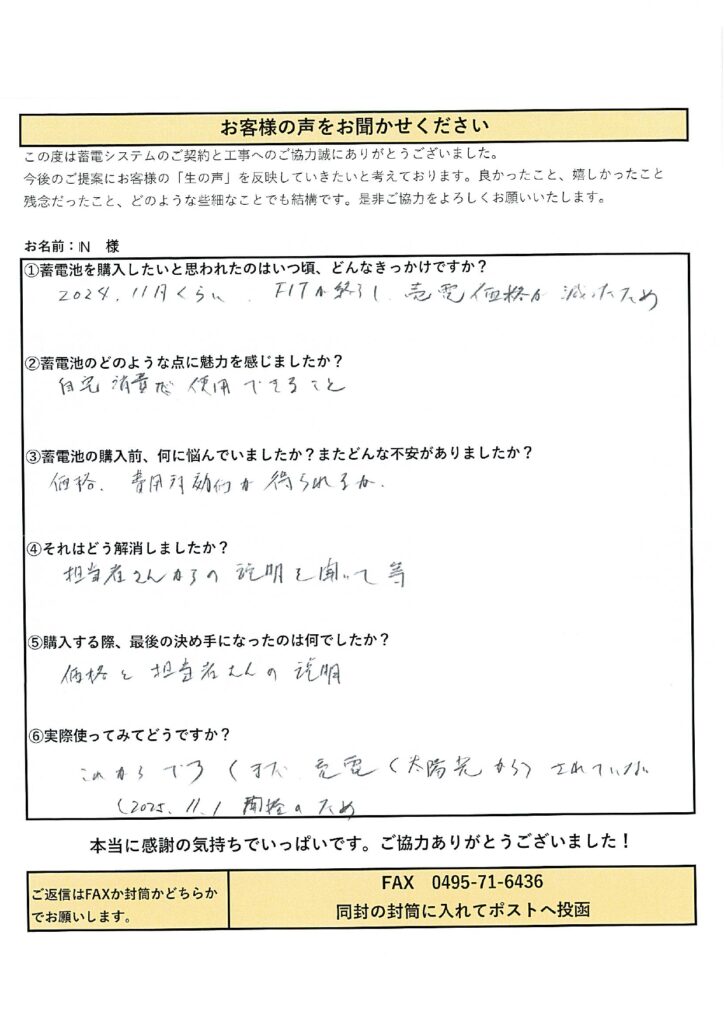 お客様の声をお聞かせください
この度は蓄電システムのご契約と工事へのご協力誠にありがとうございました。
今後のご提案にお客様の「生の声」を反映していきたいと考えております。良かったこと、嬉しかったこと
残念だったこと、どのような些細なことでも結構です。是非ご協力をよろしくお願いいたします。
お名前：N 様
①蓄電池を購入したいと思われたのはいつ頃、どんなきっかけですか？
2024.11月くらい、FITが終了し、売電価格が減ったため
②蓄電池のどのような点に魅力を感じましたか？
自宅消費が使用できること
③蓄電池の購入前、何に悩んでいましたか？またどんな不安がありましたか？
価格、費用対効何が得られるか、
④それはどう解消しましたか？
担当者さんからの説明を聞いて等
⑤購入する際、最後の決め手になったのは何でしたか？
価格と担当者さんの説明
⑥実際使ってみてどうですか？
これからです（まだ、売電（太陽光から）されていない
（2025.11.1 開始のため
本当に感謝の気持ちでいっぱいです。ご協力ありがとうございました！
ご返信はFAXか封筒かどちらか
でお願いします。
FAX 0495-71-6436
同封の封筒に入れてポストへ投函